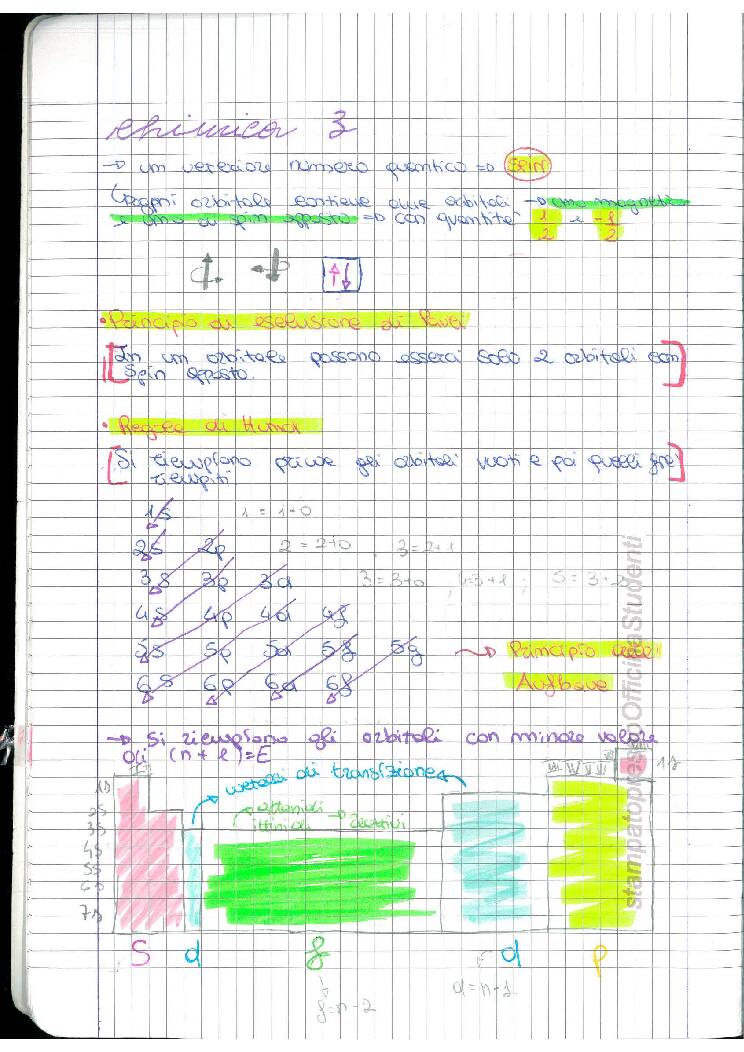 chimica 3
→ un ulteriore numero quantico ⇒ spin
↳ ogni orbitale contiene due orbitali → uno magnetico
e uno di spin opposto ⇒ con quantità 1/2 e -1/2
↑ ↓ ↑↓
• Principio di esclusione di Pauli
[In un orbitale possono esserci solo 2 orbitali con
spin opposto.]
• Regola di Hund
[Si riempiono prima gli orbitali vuoti e poi quelli già
riempiti]
1s 1 = 1+0
2s 2p 2 = 2+0 3 = 2+1
3s 3p 3d 3 = 3+0 , 4 = 3+1 ; 5 = 3+2
4s 4p 4d 4f
5s 5p 5d 5f 5g → Principio dell'
6s 6p 6d 6f Aufbau
→ Si riempiono gli orbitali con minore valore
di (n + l) = E
1s
metalli di transizione
1s
2s
3s
4s
5s
6s
7s
→ reattivi
s d f d p
f = n - 2
d = n - 1
stampatopressoOfficinaStudenti